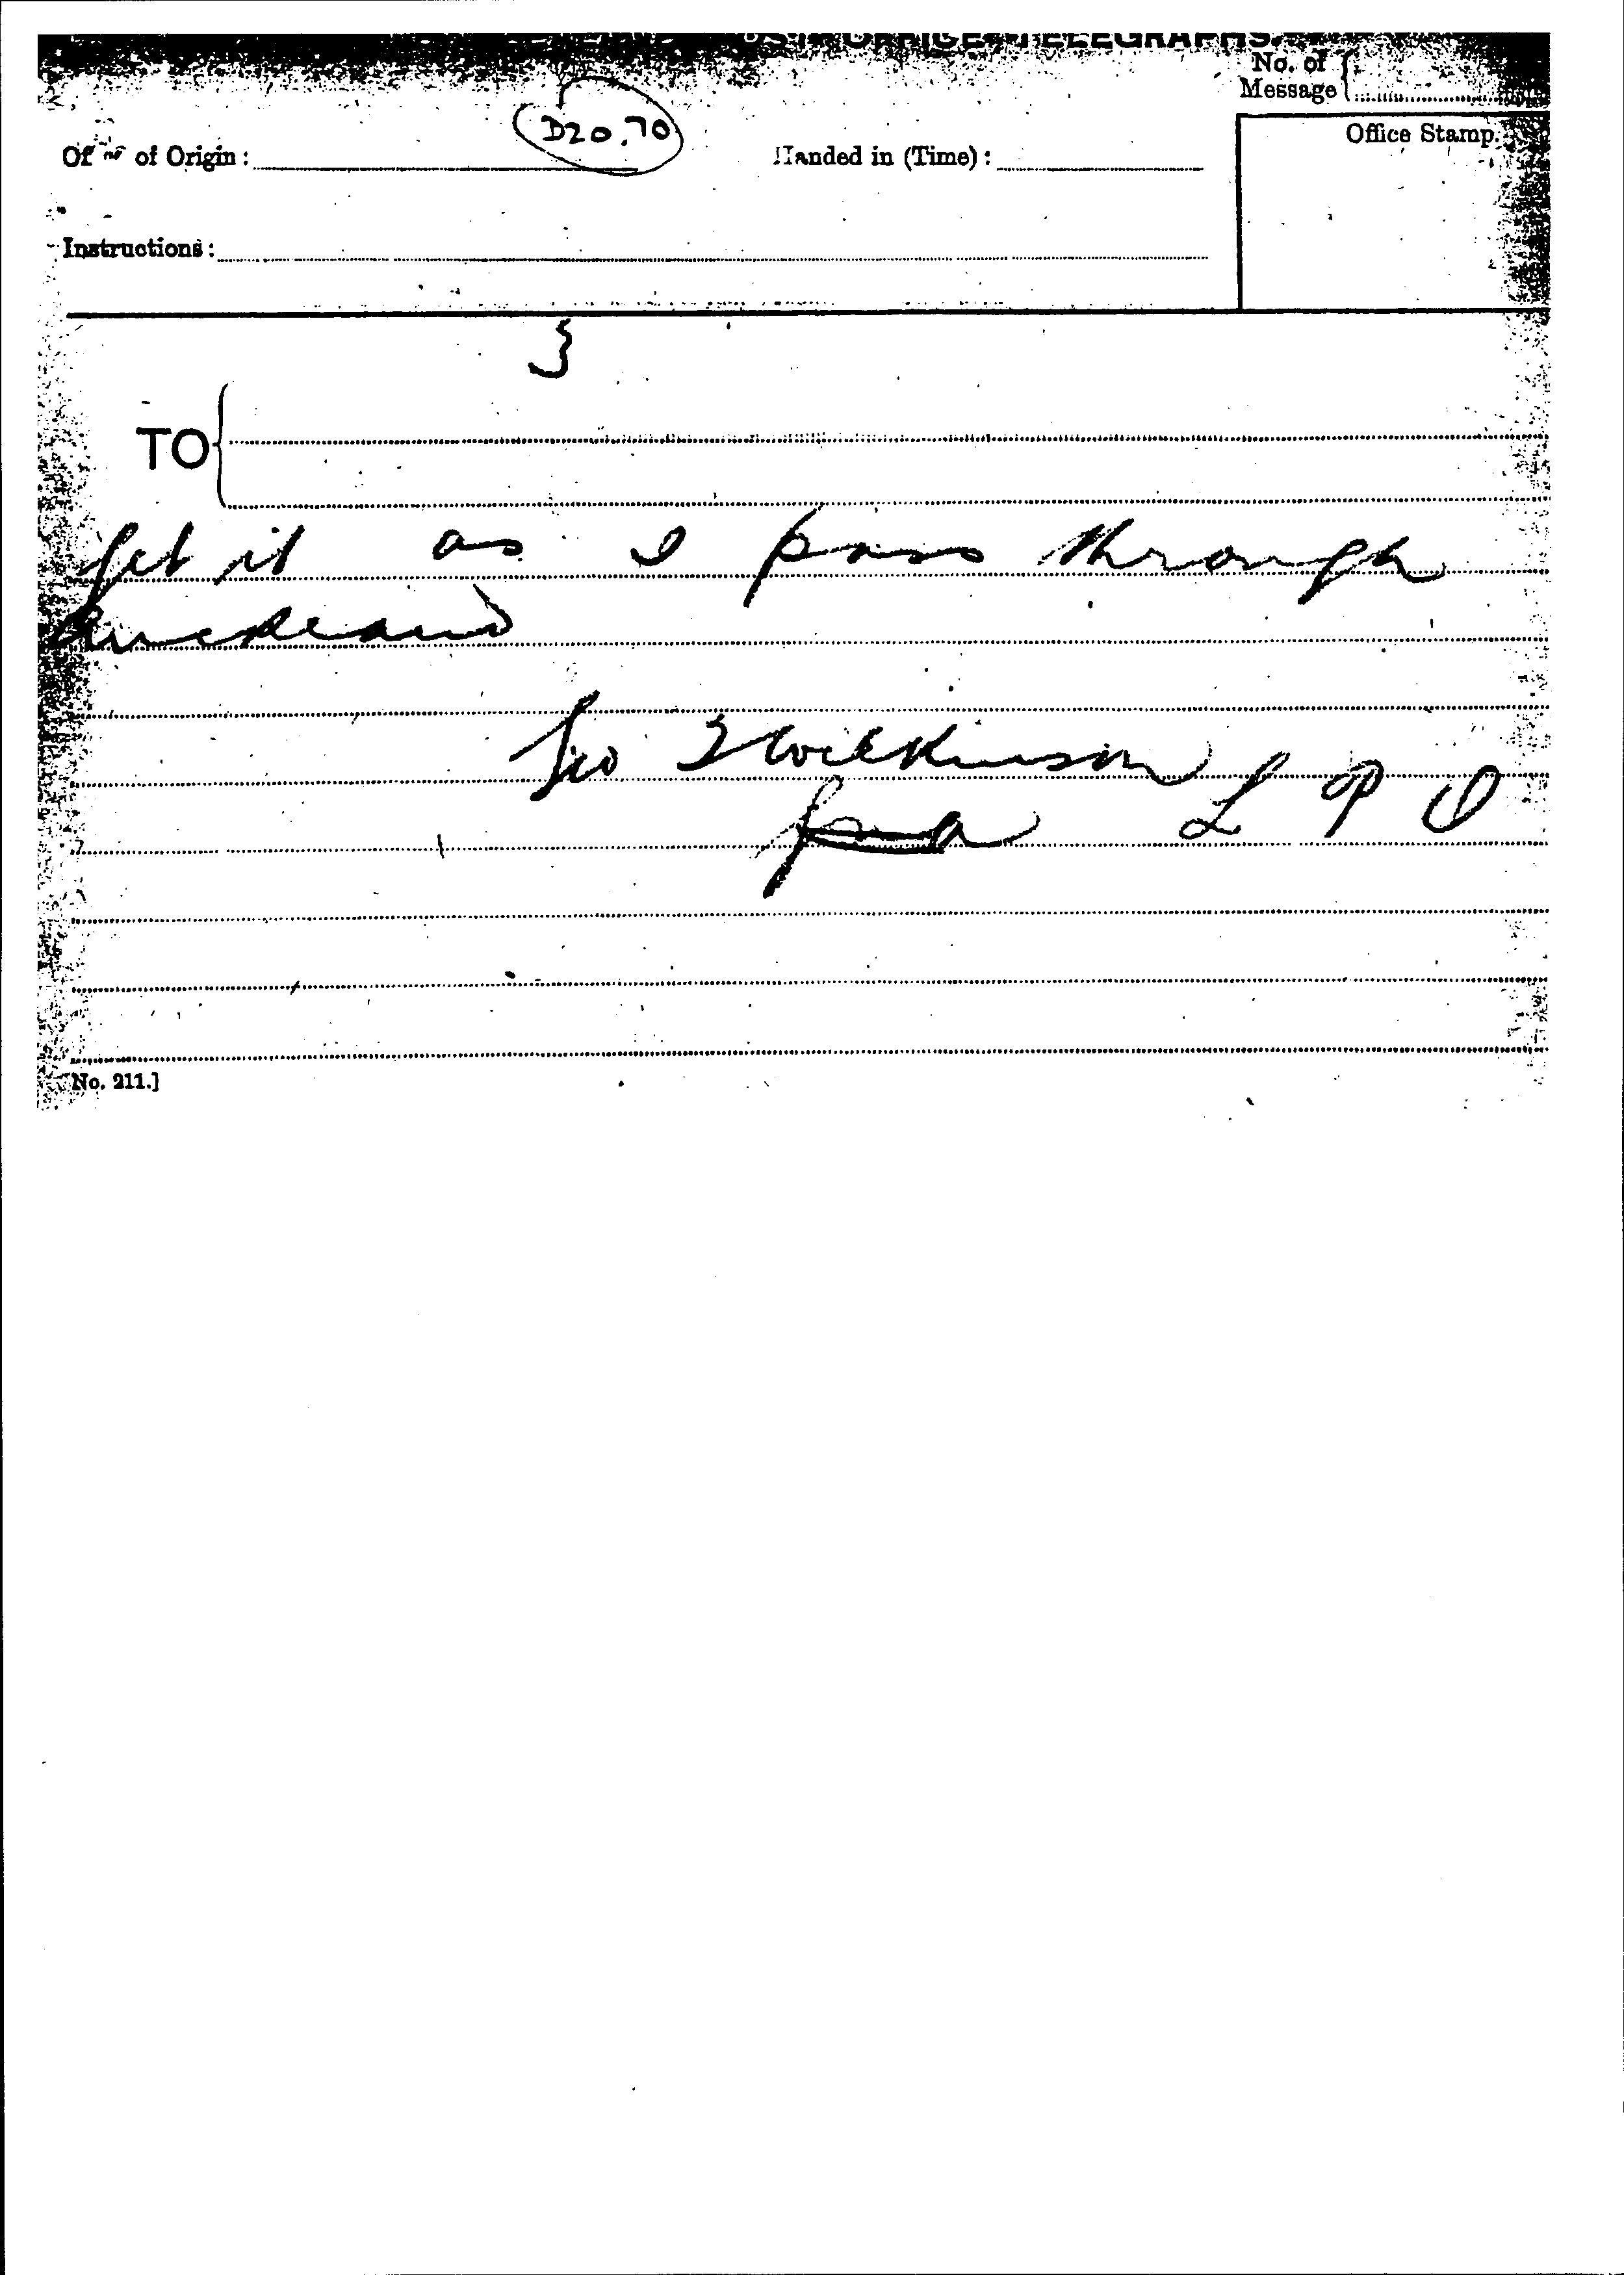 POST OFFICE TELEGRAPHS.
No. of
Message
D20.70
of Origin :
Handed in (Time) :
Office Stamp.
Instructions :
3
TO
get it as I pass through
Auckland
Geo Wilkinson
L P O
No. 211.]